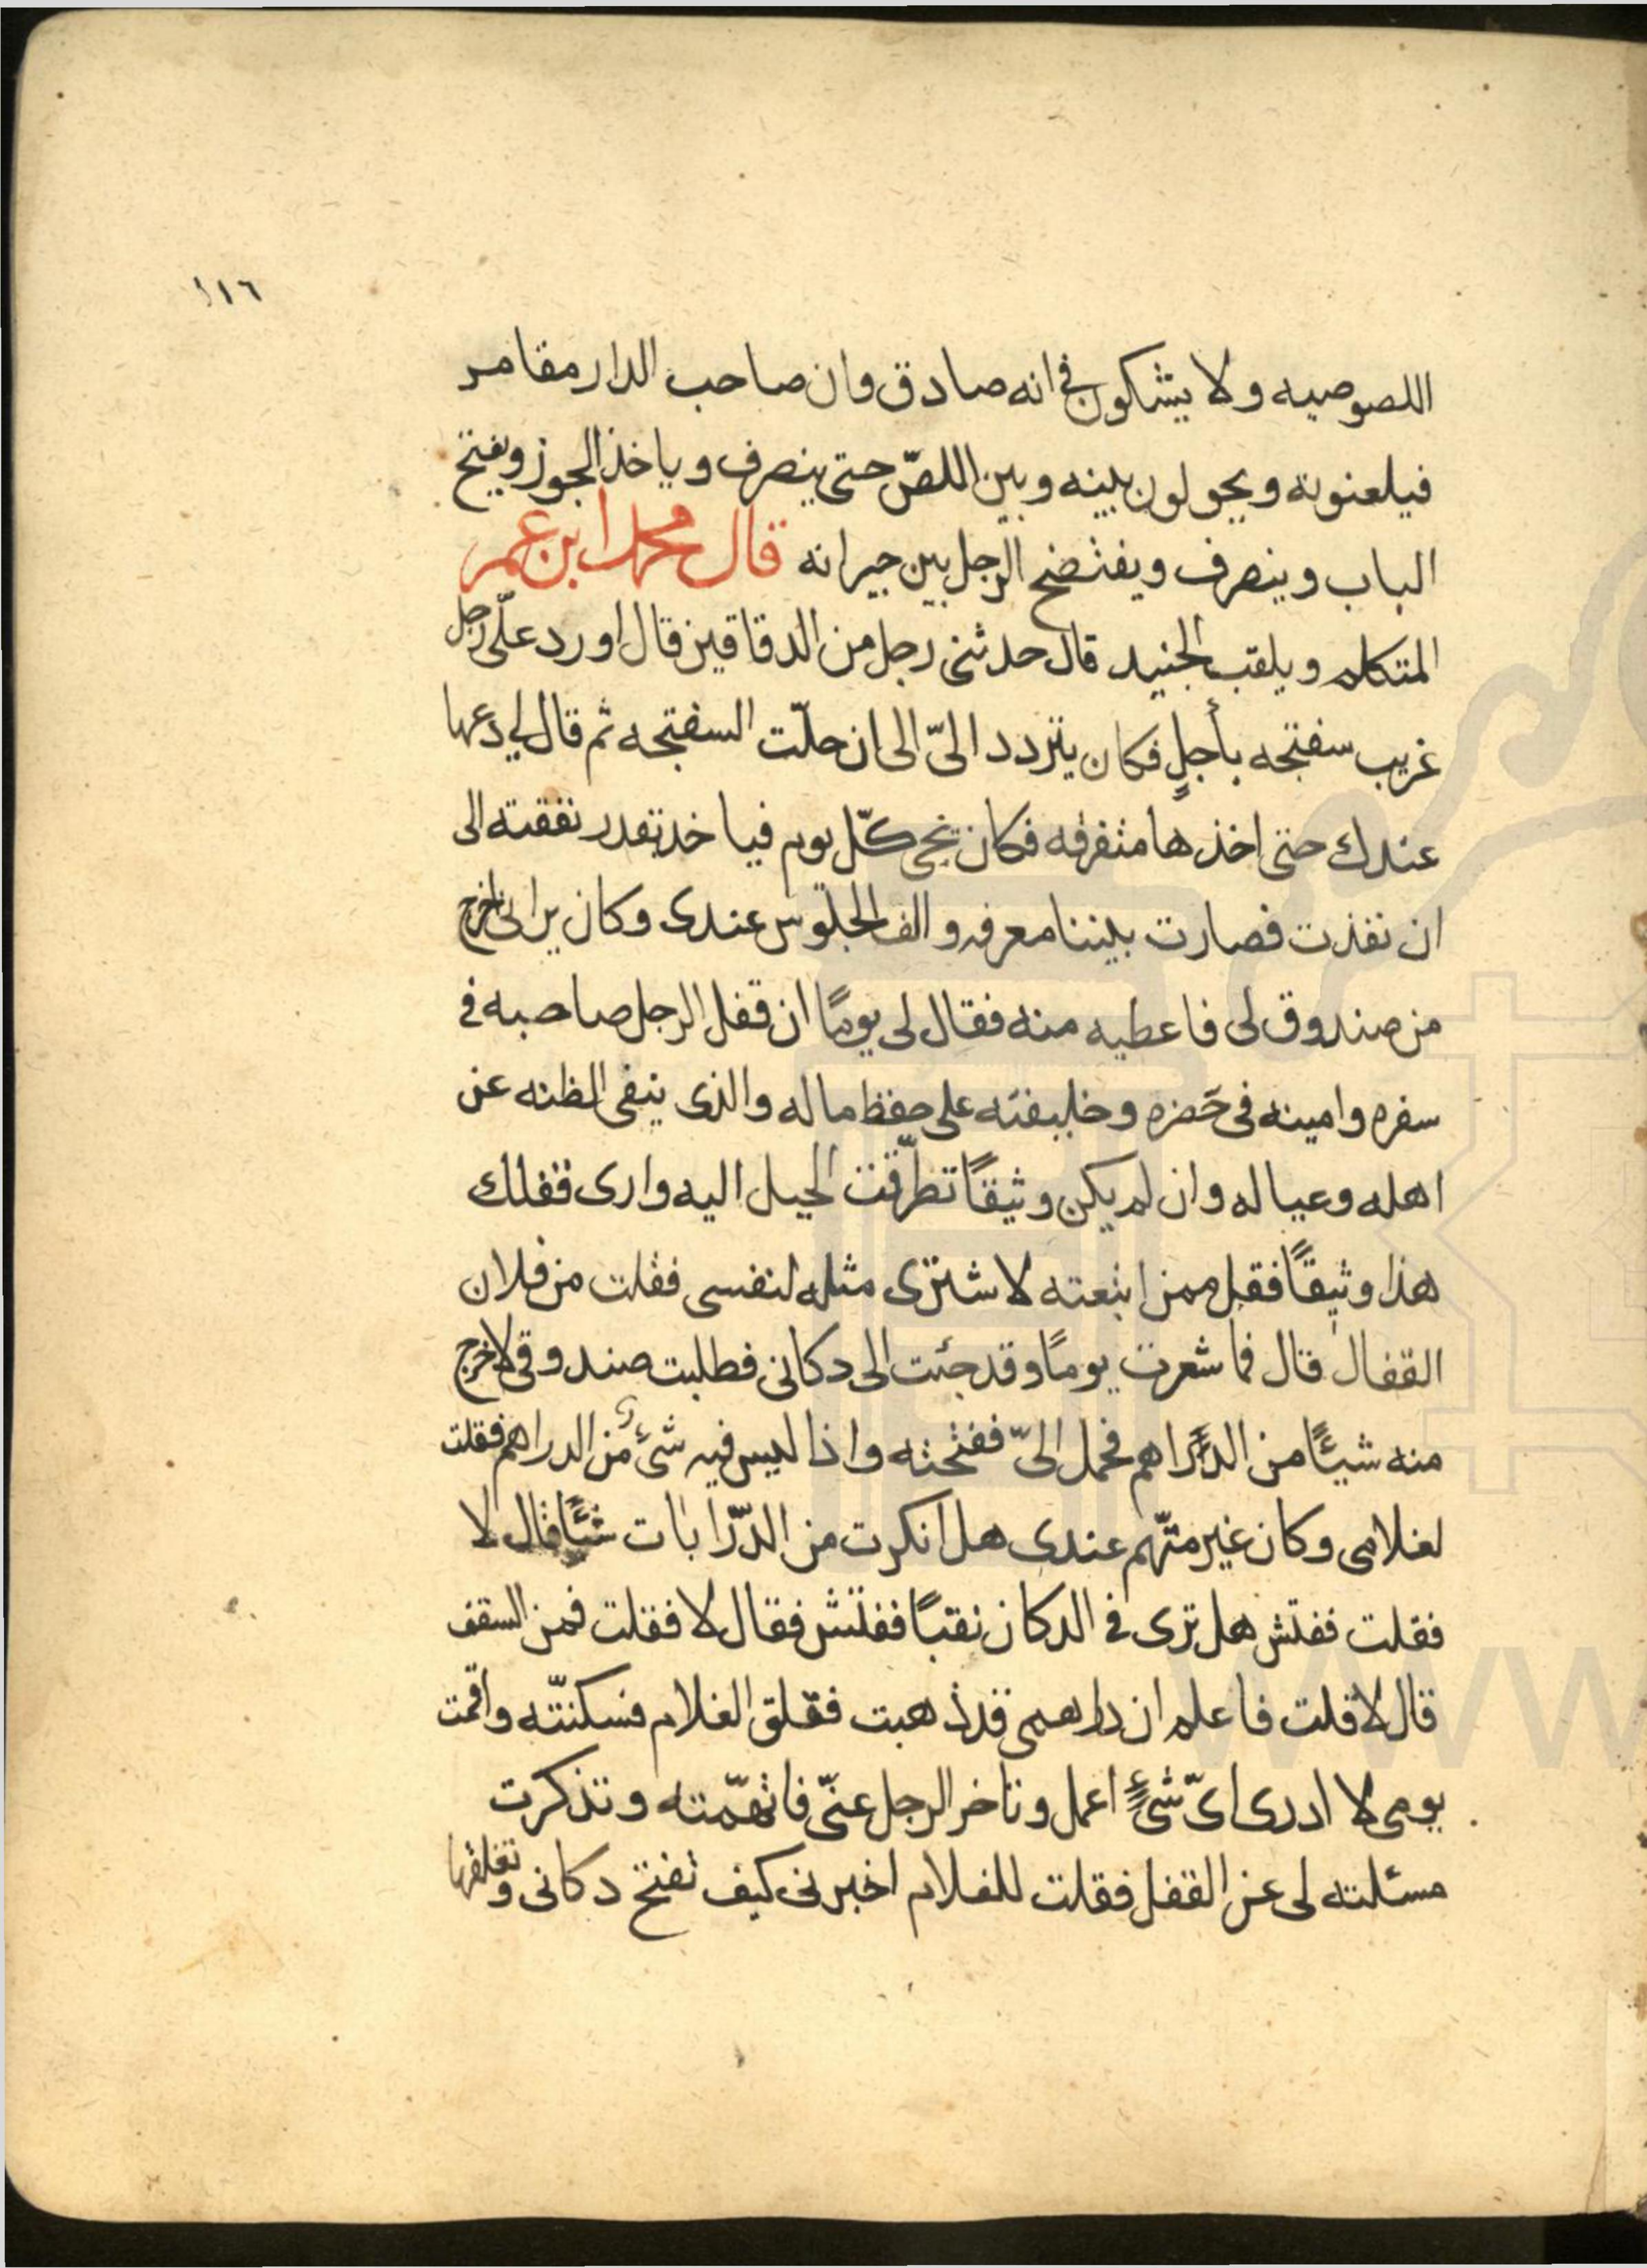 ١١٦
اللصوصيه ولا يشكون في انه صادق وان صاحب الدار مقامر
فيلعنونه ويحولون بينه وبين اللصّ حتى ينصرف وياخذ الجوز ويفتح
الباب وينصرف ويفتضح الرجل بين جيرانه قال محمد ابن عمر
المتكلم ويلقب الجنيد قال حدثني رجل من الدقاقين قال اورد علّى رجل
غريب سفتجه بأجلٍ فكان يتردد الىّ الى ان حلّت السفتجه ثم قال لي دعها
عندك حتى اخذها متفرقه فكان يجى كلّ يوم فياخذ بقدر نفقته الى
ان نفذت فصارت بيننا معرفه والف الجلوس عندى وكان يرانى اخرج
من صندوق لى فاعطيه منه فقال لى يومًا ان قفل الرجل صاحبه في
سفره وامينه فى حَضره وخليفته على حفظ ماله والذى ينفى الظنه عن
اهله وعياله وان لم يكن وثيقًا تطرّقت الحيل اليه وارى قفلك
هذا وثيقًا فقل ممن ابتعته لاشترى مثله لنفسى فقلت من فلان
القفال قال فما شعرت يومًا وقد جئت الى دكانى فطلبت صندوقى لاخرج
منه شيئًا من الدّراهم فحمل الىّ ففتحته واذا ليس فيه شئ من الدراهم فقلت
لغلامى وكان غير متّهم عندى هل انكرت من الدّرابات شئًا قال لا
فقلت ففتش هل ترى في الدكان نقبًا ففتش فقال لا فقلت فمن السقف
قال لا قلت فاعلم ان دراهمى قد ذهبت فقلق الغلام فسكنتّه واقمت
يومى لا ادرى اىّ شئٍ اعمل وتاخر الرجل عنّى فاتهمّته وتذكرت
مسئلته لى عن القفل فقلت للغلام اخبرنى كيف تفتح دكانى وتغلقها